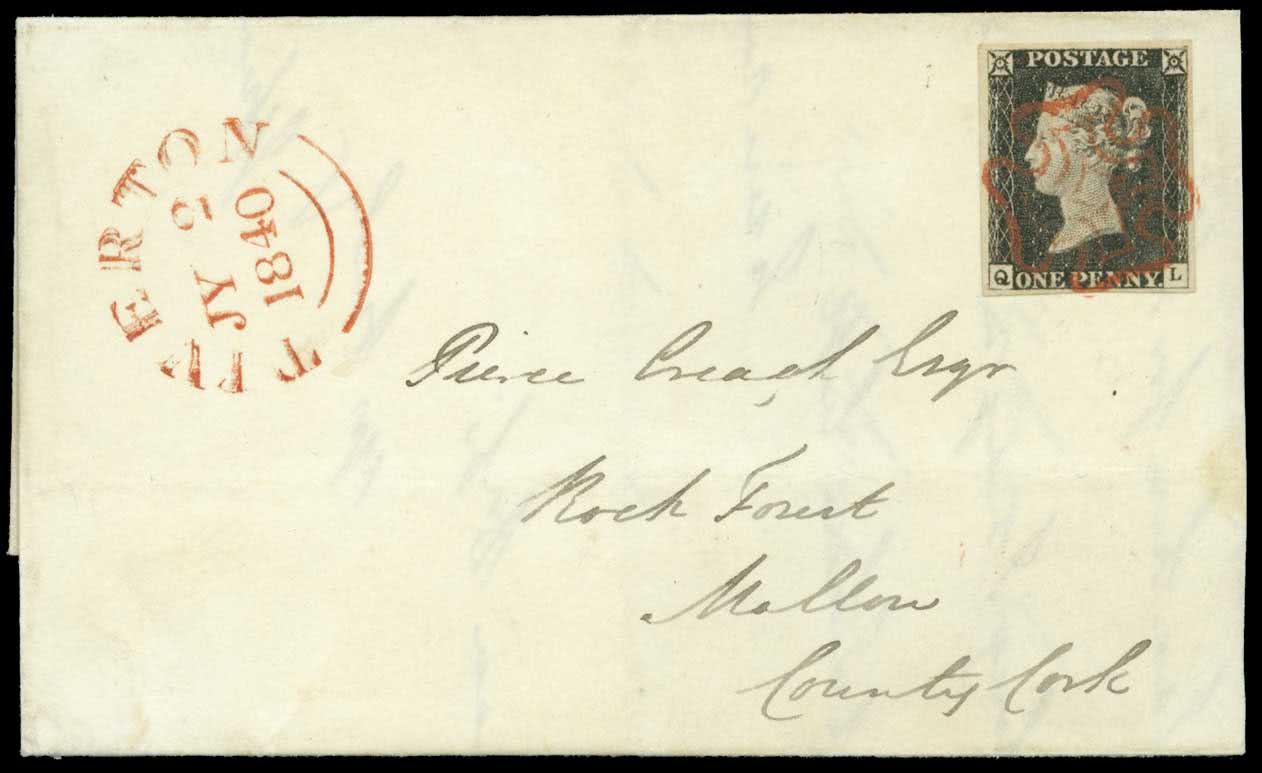 TIVERTON
JY 2
1840
POSTAGE
Q ONE PENNY. L
Pierce Creagh Esqr
Rock Forest
Mallow
County Cork